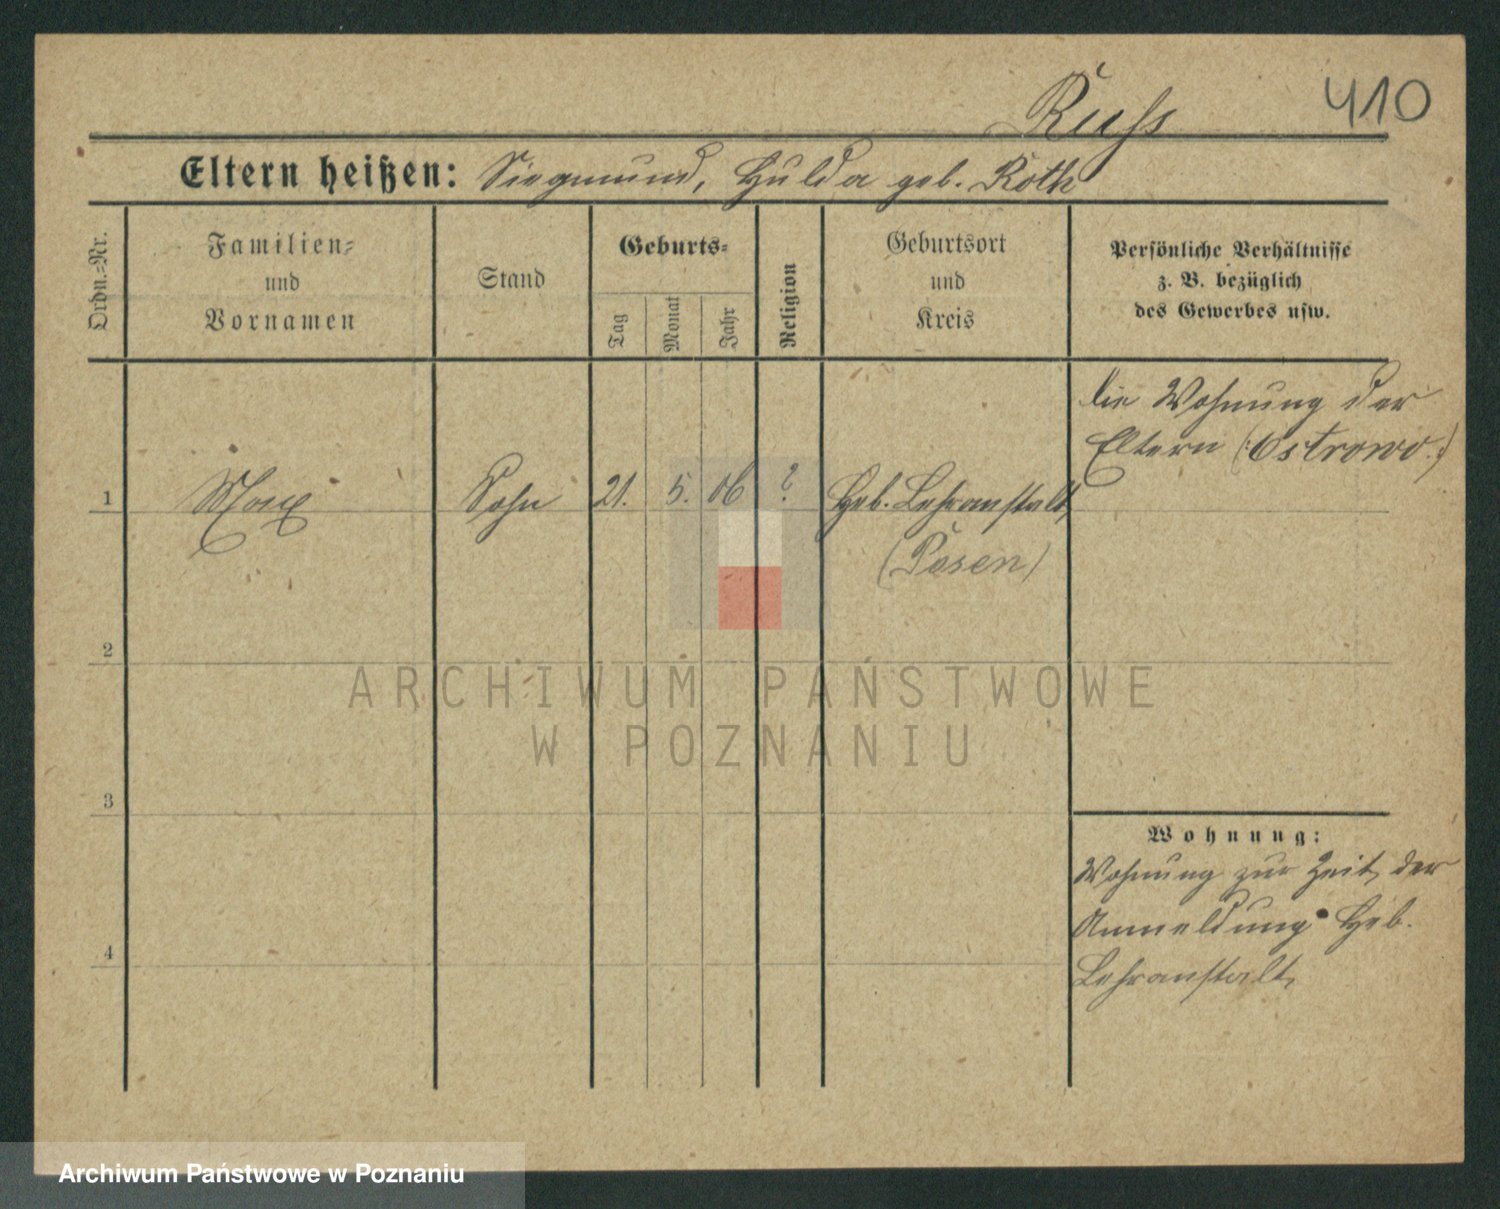 410
Russ
Eltern heißen: Siegmund, Hulda geb. Roth
Ordn.-Nr.
Familien-
und
Vornamen
Stand
Geburts-
Tag
Monat
Jahr
Religion
Geburtsort
und
Kreis
Persönliche Verhältnisse
z. B. bezüglich
des Gewerbes usw.
1 Max Sohn 21. 5. 06 ? Heb. Lehranstalt
(Posen)
die Wohnung der
Eltern (:Ostrowo.:)
2
3
4
Wohnung:
Wohnung zur Zeit der
Anmeldung Heb.
Lehranstalt
ARCHIWUM PAŃSTWOWE
W POZNANIU
Archiwum Państwowe w Poznaniu